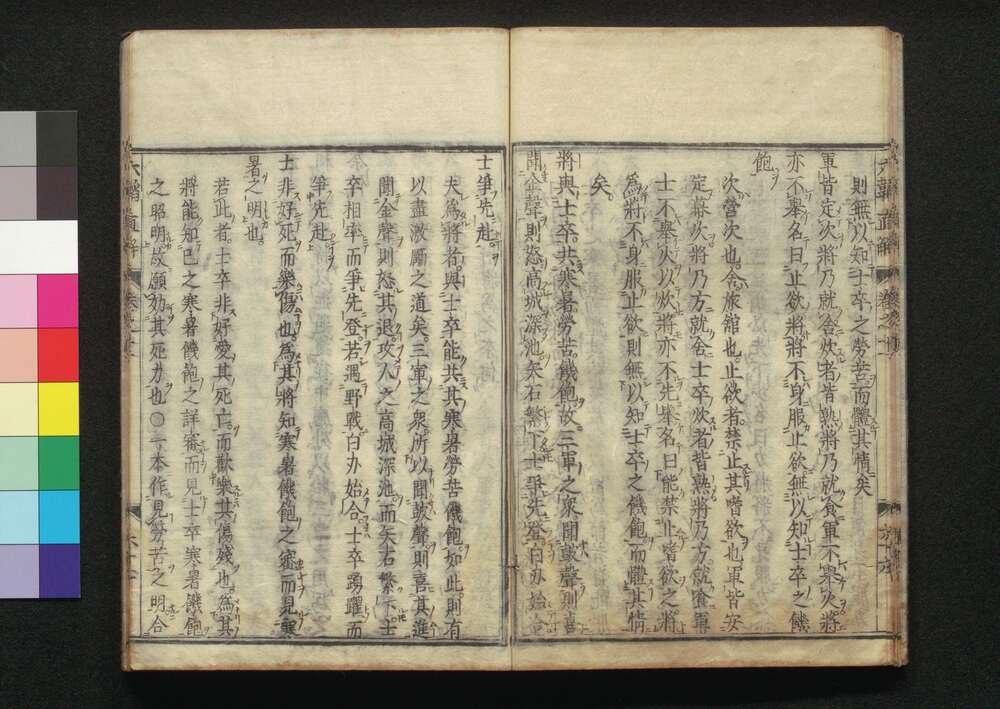 則無以知士卒之勞苦而體其情矣
軍皆定次將乃就舍炊者皆熟將乃就食軍不舉火將
亦不舉名曰止欲將將不身服止欲無以知士卒之饑
飽
次營次也舍旅舘也止欲者禁止其嗜欲也軍皆安
定幕次將乃方就舍士卒炊者皆熟將乃方就飱軍
士不舉火以炊將亦不先舉名曰能禁止嗜欲之將
為將不身服止欲則無以知士卒之饑飽而體其情
矣
將與士卒共寒暑勞苦饑飽故三軍之衆聞鼓聲則喜
聞金聲則怒高城深池矢石繁下士爭先登白刃始合
士爭先赴
夫為將者與士卒能共其寒暑勞苦饑飽如此則有
以盡激勵之道矣三軍之衆所以聞鼓聲則喜其進
聞金聲則怒其退攻人之高城深池而矢石繁下士
卒相率而爭先登若遇野戰白刃始合士卒踴躍而
爭先赴
士非好死而樂傷也為其將知寒暑饑飽之審而見勞苦
之明也
若此者士卒非好愛其死亡而歡樂其傷殘也為其
將能知已之寒暑饑飽之詳審而見士卒寒暑饑飽
之昭明故願効其死力也〇一本作見勞苦之明合
六韜直解
卷之